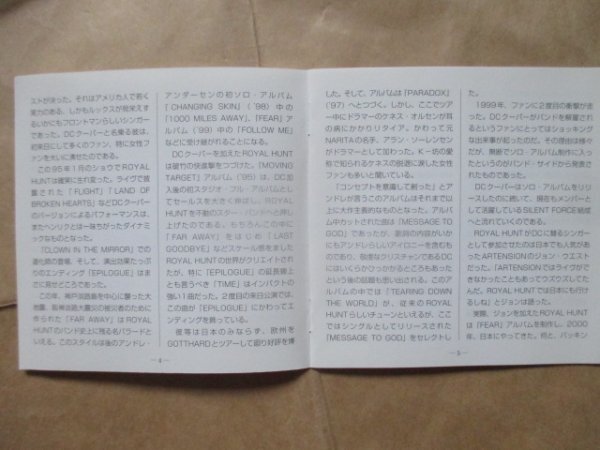 ストが決った。それはアメリカ人で若く
実力のある、しかもルックスが見栄えす
るいかにもフロントマンらしいシンガー
であった。DCクーパーと名乗る彼は、
初来日にして多くのファン、特に女性フ
ァンを大いに沸せたのである。
この95年1月のショウでROYAL
HUNTは確実に生れ変った。ライヴで披
露された「FLIGHT」「LAND OF
BROKEN HEARTS」などDCクーパー
のバージョンによるパフォーマンスは、
またヘンリクとは一味ちがったダイナミ
ックなものとなった。
「CLOWN IN THE MIRROR」での
道化師の登場、そして、演出効果たっぷ
りのエンディング「EPILOGUE」はまさ
に見せどころであった。
この年、神戸淡路島を中心に襲った大
地震、阪神淡路大震災の被災者のために
作られた「FAR AWAY」はROYAL
HUNTのバンド史上に残る名バラードと
いえる。このスタイルは後のアンドレ・
アンダーセンの初ソロ・アルバム
「CHANGING SKIN」('98)中の
「1000 MILES AWAY」、「FEAR」ア
ルバム('99)中の「FOLLOW ME」
などに受け継がれることになる。
DCクーパーを加えたROYAL HUNT
は破竹の快進撃をつづけた。「MOVING
TARGET」アルバム('95)は、DC加
入後の初スタジオ・フル・アルバムとし
てセールスを大きく伸ばし、ROYAL
HUNTを不動のスター・バンドへと押し
上げたのである。もちろんこの中に
「FAR AWAY」をはじめ「LAST
GOODBYE」などスケール感をました
ROYAL HUNTの世界がクリエイトされ
たが、特に「EPILOGUE」の延長線上
とも言うべき「TIME」はインパクトの
強い1曲だった。2度目の来日公演では、
この曲が「EPILOGUE」にかわってエ
ンディングを飾っている。
彼等は日本のみならず、欧州を
GOTTHARDとツアーして廻り好評を博
—4—
した。そして、アルバムは「PARADOX」
('97)へとつづく。しかし、ここでツア
ー中にドラマーのケネス・オルセンが耳
の病にかかりリタイア。かわって元
NARITAの名手、アラン・ソーレンセン
がドラマーとして加わった。K-坊の愛
称で知られるケネスの脱退に涙した女性フ
ァンも多いと聞いている。
「コンセプトを意識して創った」とア
ンドレが言うこのアルバムはそれまで以
上に大作主義的なものとなった。アルバ
ム中カットされた曲は「MESSAGE TO
GOD」であったが、歌詞の内容がいか
にもアンドレらしいアイロニーを含むもの
であり、敬虔なクリスチャンであるDC
にはいくらかひっかかるところもあった
という後の話題も思い出される。このア
ルバムの中では「TEARING DOWN
THE WORLD」が、従来のROYAL
HUNTらしいチューンといえるが、ここ
ではシングルとしてリリースされた
「MESSAGE TO GOD」をセレクトし
た。
1999年、ファンに2度目の衝撃が走
った。DCクーパーがバンドを解雇され
るというファンにとってはショッキング
な出来事が起ったのだ。その理由は様々
だが、無断でソロ・アルバム制作に入っ
たというのがバンド・サイドから発表さ
れたものであった。
DCクーパーはソロ・アルバムをリリ
ースしたのに続いて、現在もメンバーと
して活躍しているSILENT FORCE結成
へと流れていくのである。
ROYAL HUNTがDCに替るシンガー
として参加させたのは日本でも人気があ
ったARTENSIONのジョン・ウエスト
だった。「ARTENSIONではライヴがで
きなかったこともあってウズウズしてた
んだ。ROYAL HUNTでは日本にも行け
るしね」とジョンは語った。
実際、ジョンを加えたROYAL HUNT
は「FEAR」アルバムを制作し、2000
年、日本にやってきた。何と、バッキン
—5—